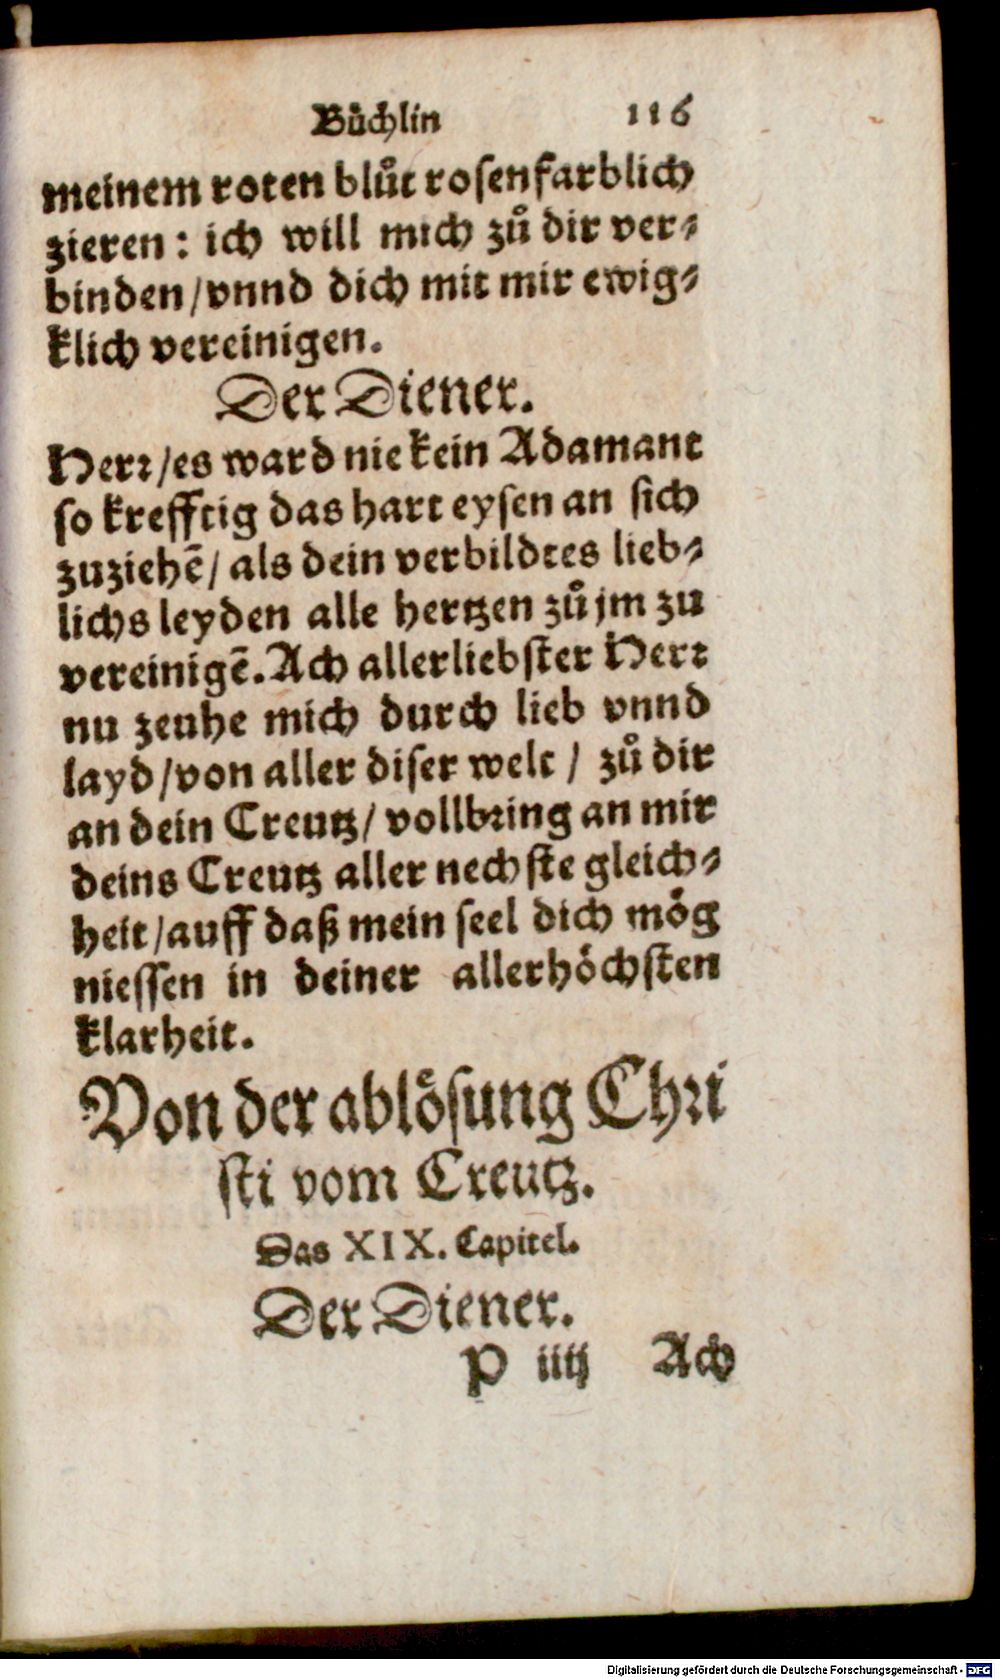 Bůchlin 116
meinem roten blůt rosenfarblich
zieren: ich will mich zů dir ver⸗
binden/vnnd dich mit mir ewig⸗
klich vereinigen.
Der Diener.
Herr/es ward nie kein Adamant
so krefftig das hart eysen an sich
zuziehẽ/ als dein verbildtes lieb⸗
lichs leyden alle hertzen zů jm zu
vereinigẽ. Ach allerliebster Herr
nu zeuhe mich durch lieb vnnd
layd/von aller diser welt / zů dir
an dein Creutz/ vollbring an mir
deins Creutz aller nechste gleich⸗
heit/auff daß mein seel dich mög
niessen in deiner allerhöchsten
klarheit.
Von der ablösung Chri
sti vom Creutz.
Das XIX. Capitel.
Der Diener.
P iiij Ach
Digitalisierung gefördert durch die Deutsche Forschungsgemeinschaft - DFG